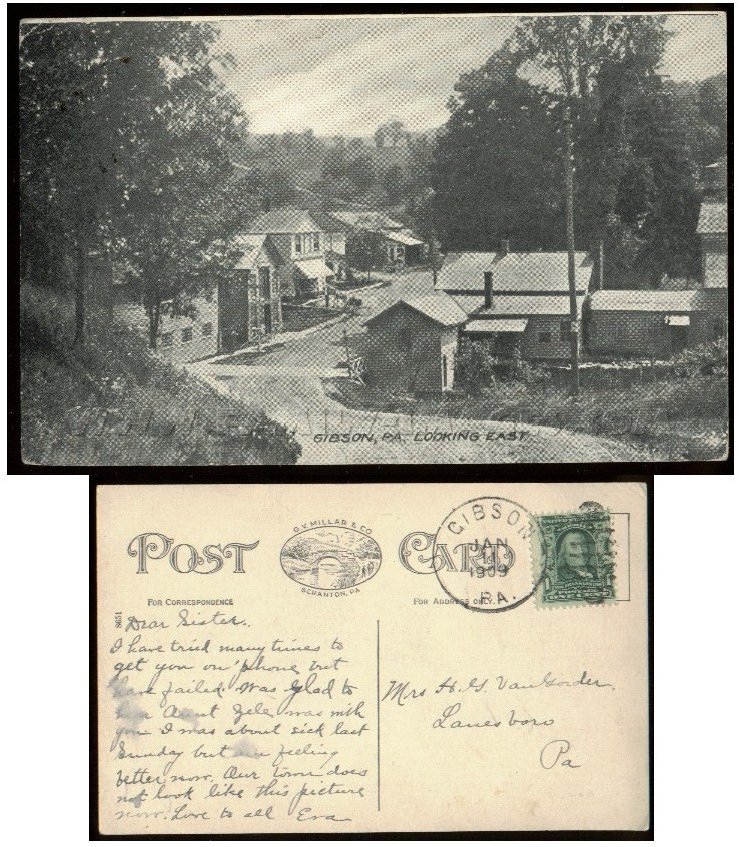 GIBSON, PA. LOOKING EAST
POST CARD
G.V. MILLAR & CO
SCRANTON, PA
FOR CORRESPONDENCE
FOR ADDRESS ONLY.
GIBSON
JAN
1909
PA.
Dear Sister.
I have tried many times to
get you on 'phone but
have failed. Was glad to
Aunt was with
you I was about sick last
Sunday but am feeling
better now. Our town does
not look like this picture
now. Love to all Eva
Mrs H. G. VanGorder.
Lanesboro
Pa